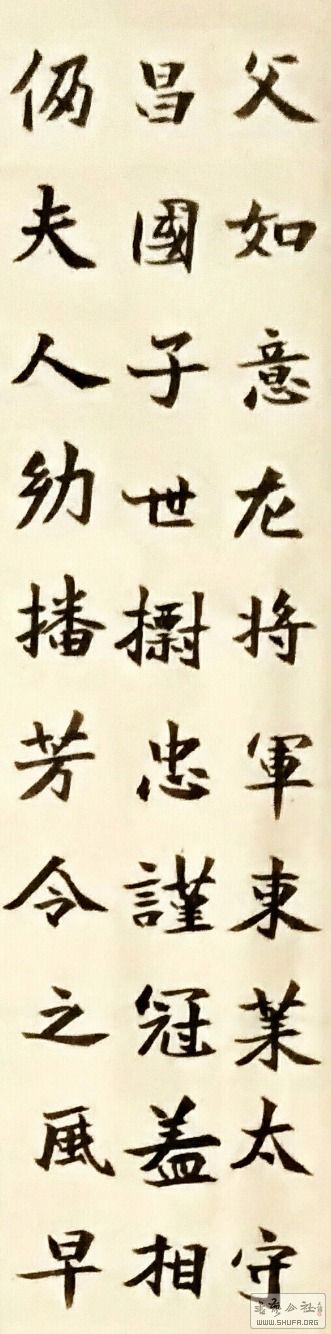 父如意左将軍東莱太守
昌國子世樹忠謹冠盖相
仍夫人幼播芳令之風早
WWW.SHUFA.ORG